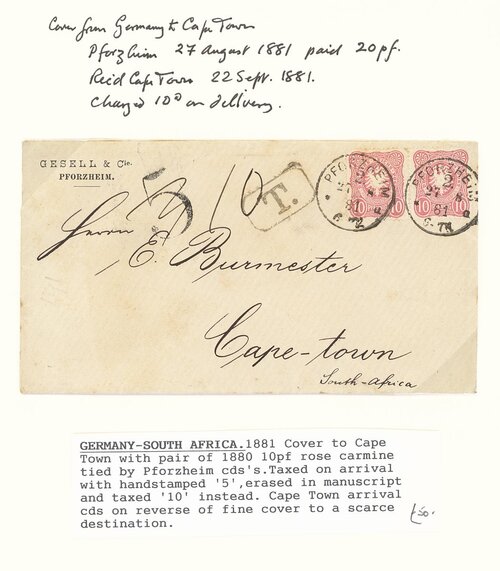 Cover from Germany to Cape Town
Pforzheim 27 August 1881 paid 20pf.
Rec'd Cape Town 22 Sept. 1881.
Charged 10d on delivery.
GESELL & Cie.
PFORZHEIM.
5
10
T.
PFORZHEIM
2
81
PFORZHEIM
2
81
10
10
10
Herrn E. Burmester
Cape-town
South-Africa
GERMANY-SOUTH AFRICA.1881 Cover to Cape
Town with pair of 1880 10pf rose carmine
tied by Pforzheim cds's.Taxed on arrival
with handstamped '5',erased in manuscript
and taxed '10' instead. Cape Town arrival
cds on reverse of fine cover to a scarce
destination.
£50.